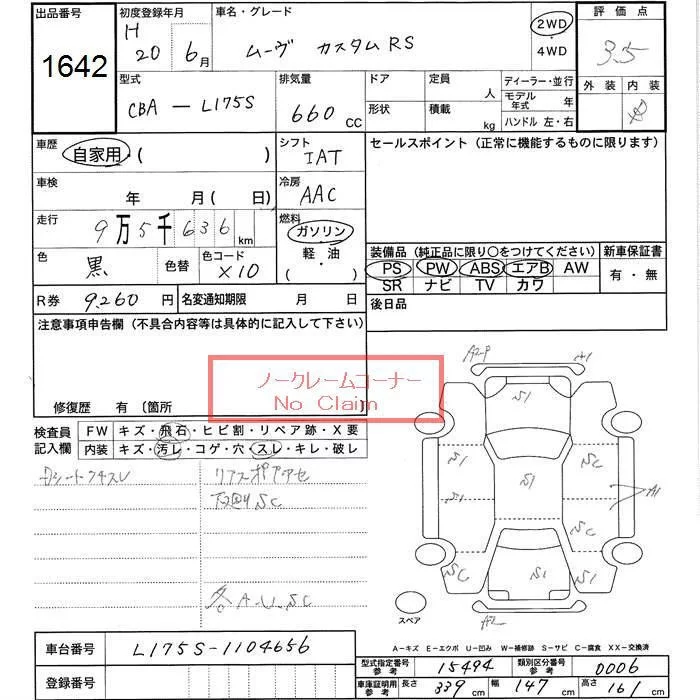 出品番号 初度登録年月 車名・グレード 評価点
1642 H 20 6月 ムーヴ カスタムRS 2WD・4WD 3.5
型式 排気量 ドア 定員 ディーラー・並行 外装 内装
CBA - L175S 660 CC 形状 積載 人 kg モデル年式 年 ハンドル 左・右
車歴 自家用・( ) シフト IAT セールスポイント (正常に機能するものに限ります)
車検 年 月 ( 日) 冷房 AAC
走行 9万5千636km 燃料 ガソリン・軽・油 ( )
色 黒 色替 色コード X10
装備品 (純正品に限り〇をつけてください) 新車保証書
PS PW ABS エアB AW 有・無
SR ナビ TV カワ
R券 9,260円 名変通知期限 月 日 後日品
注意事項申告欄 (不具合内容等は具体的に記入して下さい)
ノークレームコーナー
No Claim
修復歴 有 〔箇所
検査員記入欄 FW キズ・飛石・ヒビ割・リペア跡・X要
内装 キズ・汚レ・コゲ・穴・スレ・キレ・破レ
リアスポアアセ
下廻りSC
各A.U.SC
A2-P A1
S1
S1 S1 SC
A1
S1 SC
SC S1 S1
A2
スペア
A-キズ E-エクボ U-凹み W-補修跡 S-サビ C-腐食 XX-交換済
車台番号 L175S-1104656
型式指定番号 参考 15494 類別区分番号 参考 0006
登録番号 車庫証明用 参考 長さ 339cm 幅 147cm 高さ 161cm